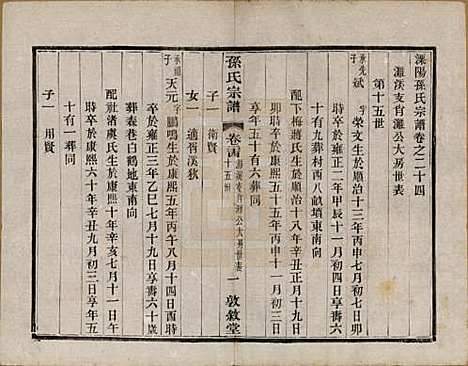 溧陽孫氏宗譜卷之二十四
濉溪支肖濉公大房世表
第十五世
承先子
斌 字榮文生於順治十三年丙申七月初七日卯
時卒於雍正二年甲辰十一月初四日享壽六
十有九葬村西八畝墳東南向
配下梅蔣氏生於順治十八年辛丑正月十九日
卯時卒於康熙五十五年丙申十一月初一日
享年五十有六葬同
子一 衛賢
女一 適胥溪狄
孫氏宗譜
卷二十四
十五世
一
敦敘堂
子
天元 字鵬鳴生於康熙五年丙午八月十四日酉時
卒於雍正三年乙巳七月十七日享壽六十歲
葬茶巷白鶴地東南向
配社渚虞氏生於康熙十年辛亥七月十一日午
時卒於康熙六十年辛丑九月初三日享年五
十有一葬同
子一 用賢